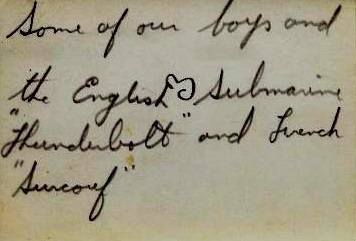 Some of our boys and
the English Submarine
"Thunderbolt" and French
"Surcouf"